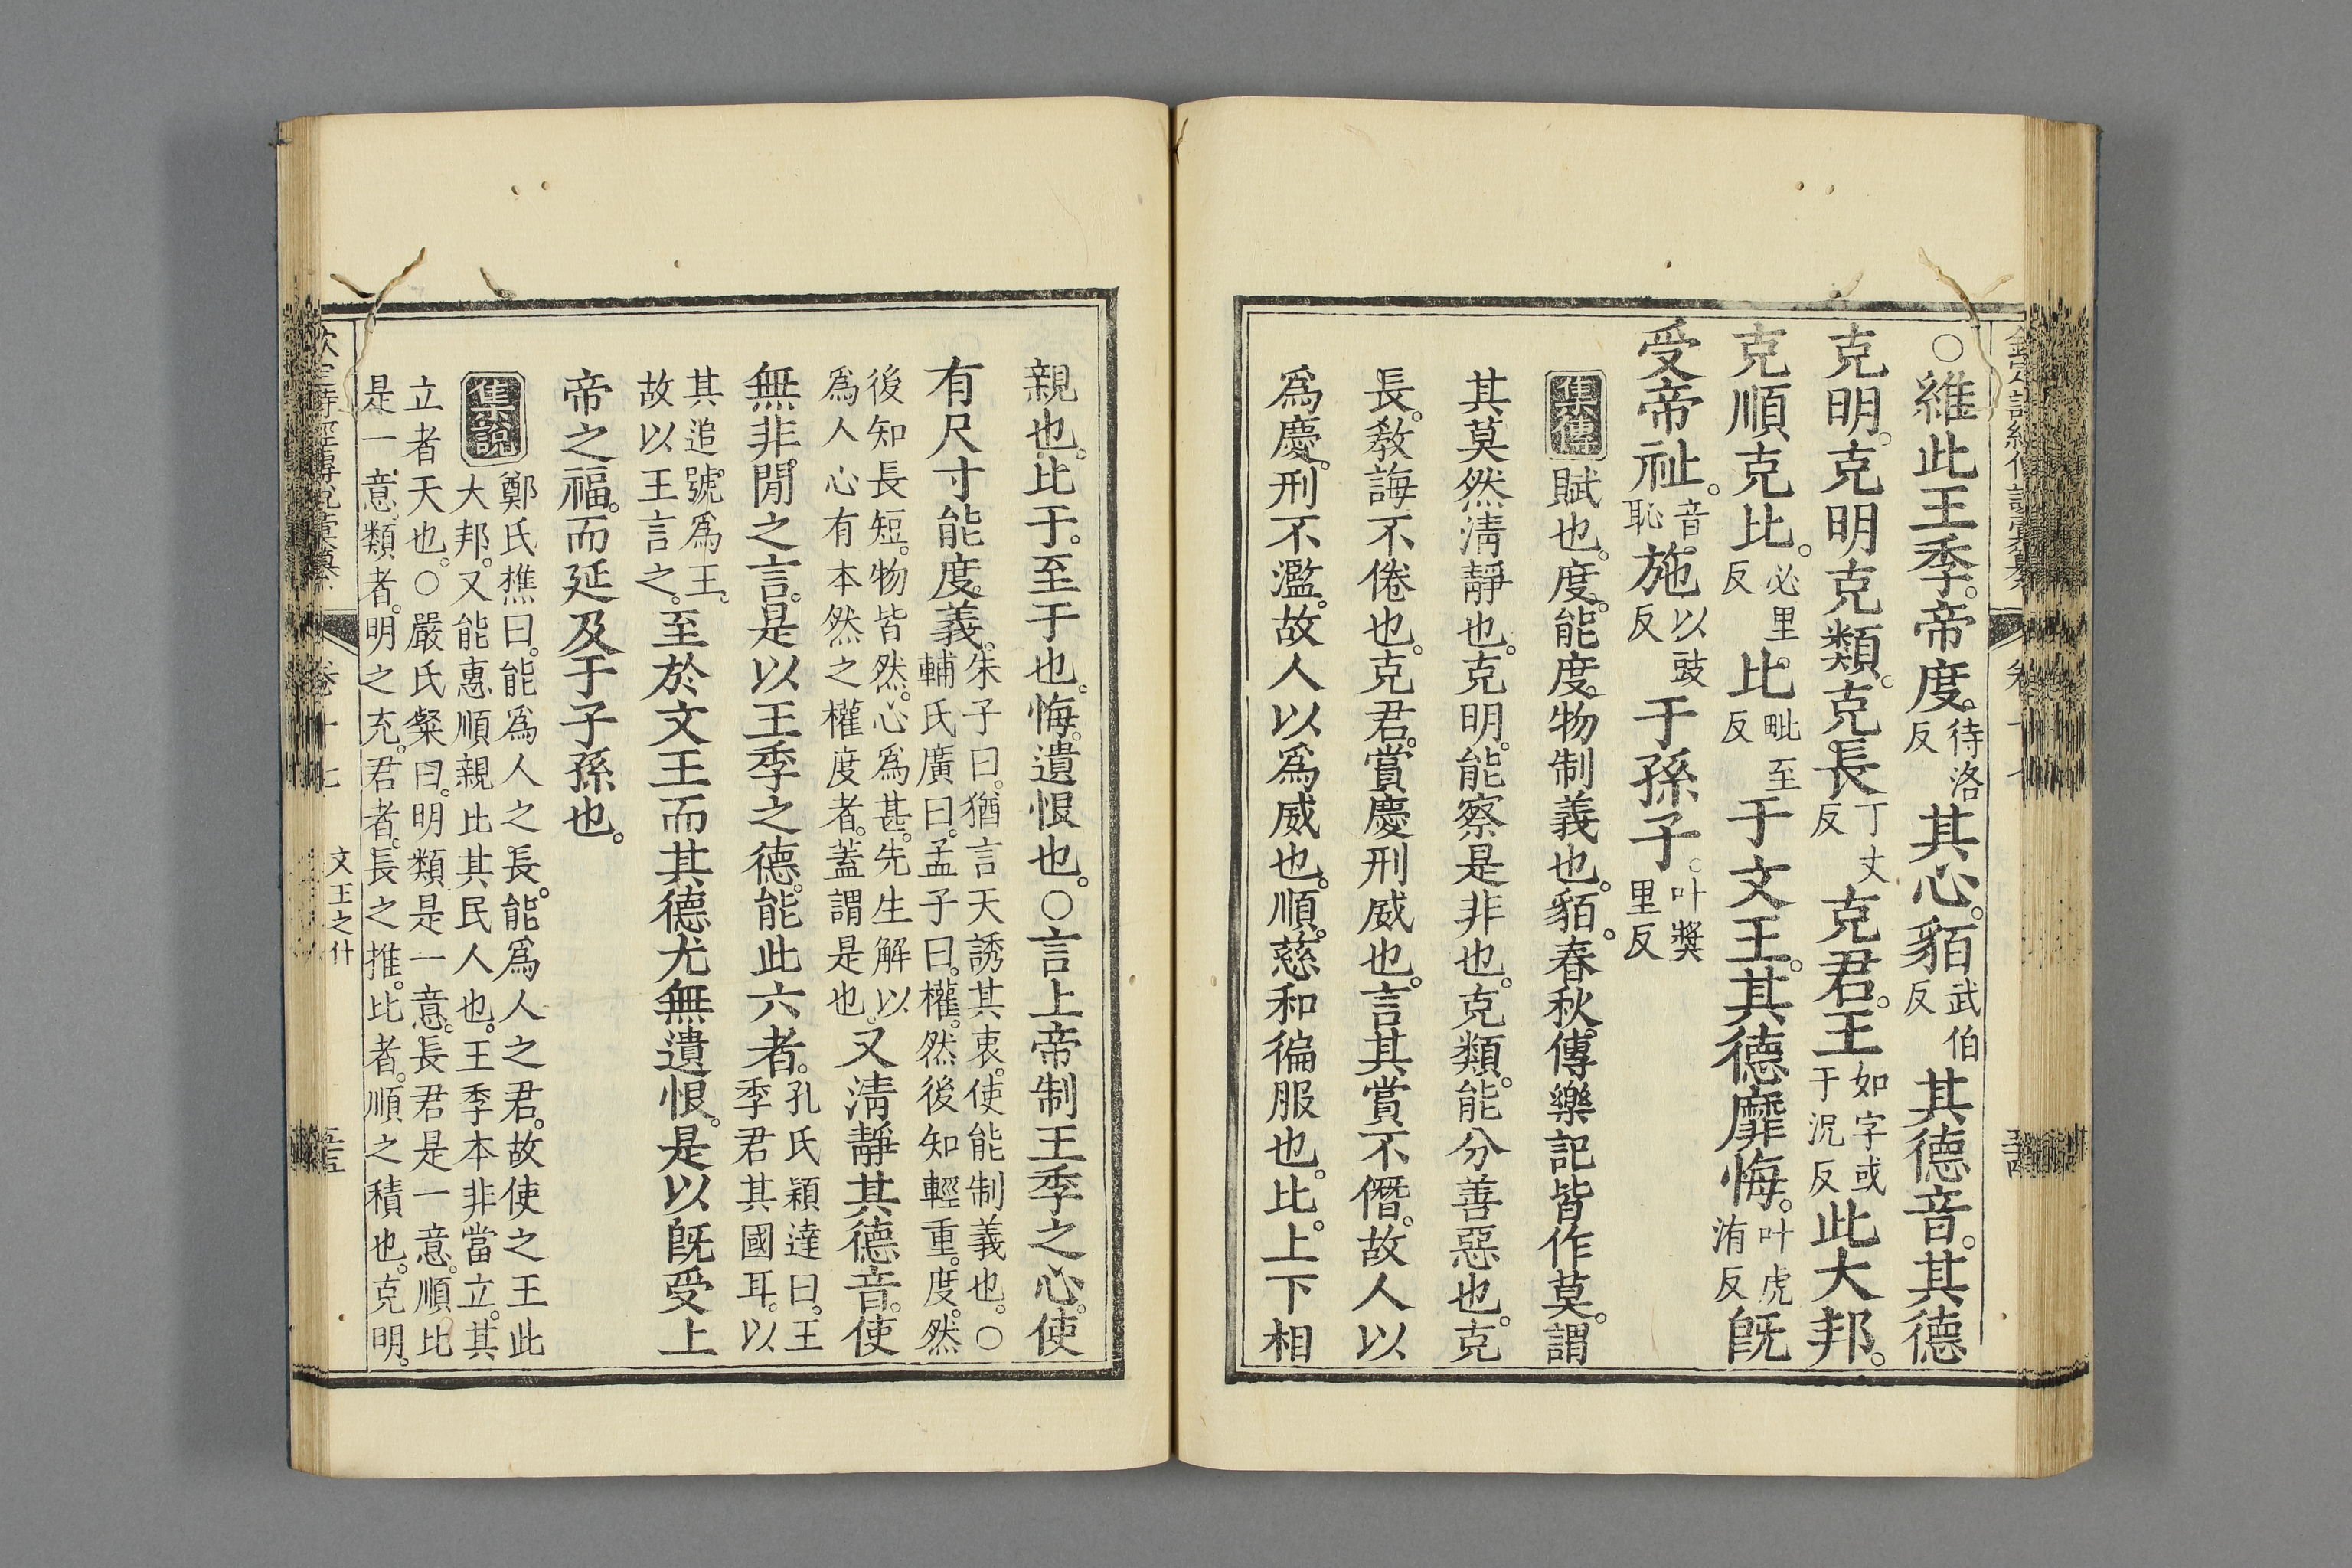 ○維此王季。帝度。待洛反其心。貊武伯反其德音。其德
克明。克明克類。克長丁丈反克君。王如字或于況反此大邦。
克順克比。必里反比毗至反于文王。其德靡悔。叶虎洧反旣
受帝祉。音恥施以豉反于孫子。叶獎里反
集傳賦也。度。能度物制義也。貊。春秋傳樂記皆作莫。謂
其莫然淸靜也。克明。能察是非也。克類。能分善惡也。克
長。敎誨不倦也。克君。賞慶刑威也。言其賞不僭。故人以
爲慶。刑不濫。故人以爲威也。順。慈和徧服也。比。上下相
親也。比于。至于也。悔。遺恨也。○言上帝制王季之心。使
有尺寸能度義。朱子曰。猶言天誘其衷。使能制義也。○輔氏廣曰。孟子曰。權。然後知輕重。度。然
後知長短。物皆然。心爲甚。先生解以爲人心有本然之權度者。蓋謂是也。又淸靜其德音。使
無非閒之言。是以王季之德。能此六者。孔氏穎達曰。王季君其國耳。以
其追號爲王。故以王言之。至於文王而其德尤無遺恨。是以旣受上
帝之福。而延及于子孫也。
集說鄭氏樵曰。能爲人之長。能爲人之君。故使之王此
大邦。又能惠順親比其民人也。王季本非當立。其
立者天也。○嚴氏粲曰。明類是一意。長君是一意。順比
是一意。類者。明之充。君者。長之推。比者。順之積也。克明。
卷十七
文王之什